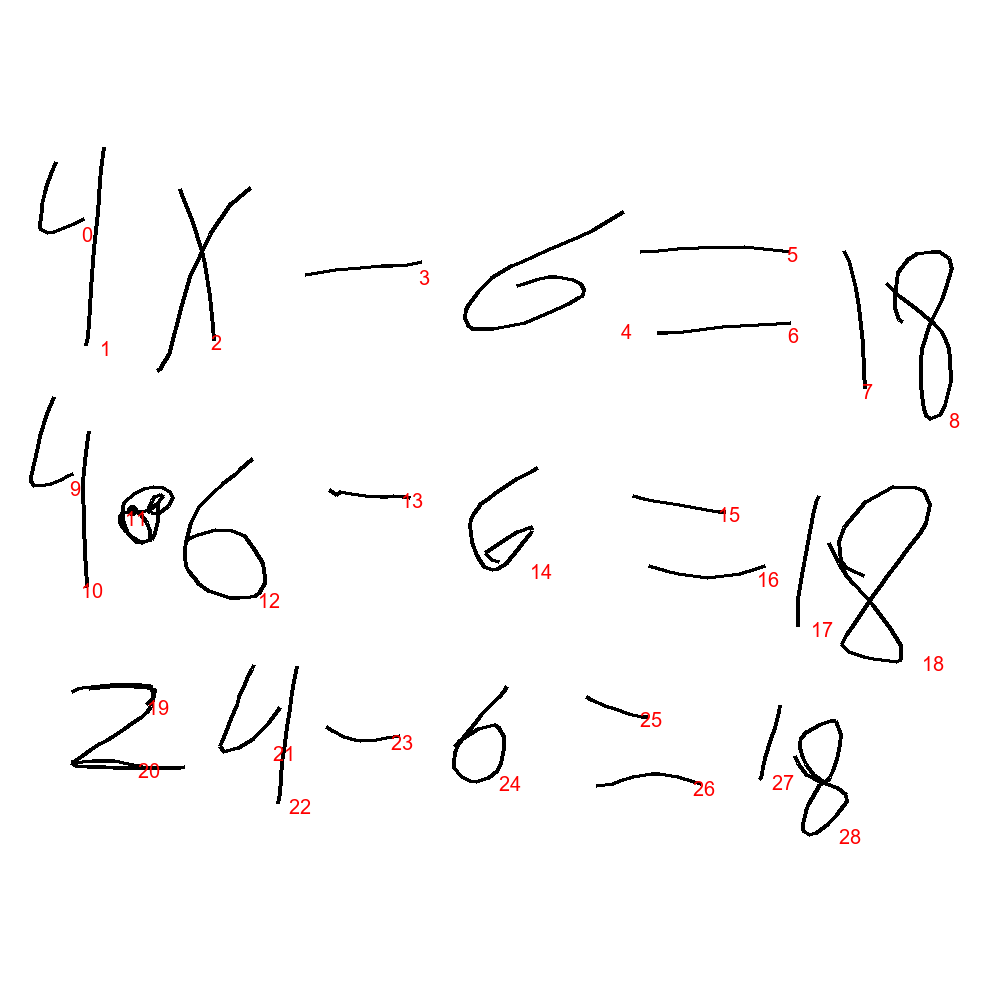 4x - 6 = 18
0 1 2 3 4 5 6 7 8
4 • 6 - 6 = 18
9 10 11 12 13 14 15 16 17 18
24 - 6 = 18
19 20 21 22 23 24 25 26 27 28